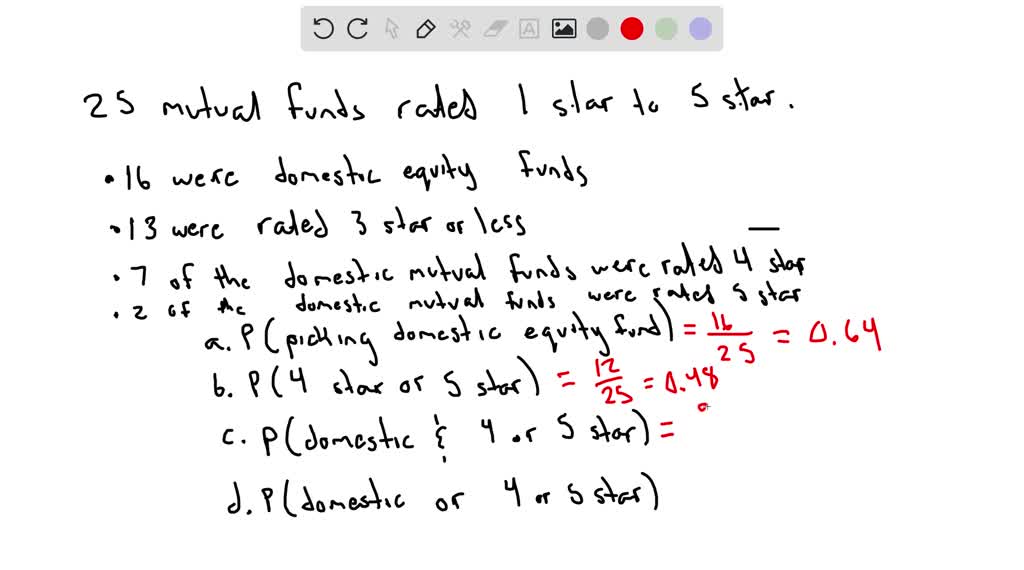 25 mutual funds rated 1 star to 5 star.
• 16 were domestic equity funds
• 13 were rated 3 star or less
• 7 of the domestic mutual funds were rated 4 star
• 2 of the domestic mutual funds were rated 5 star
a. P(picking domestic equity fund) = 16/25 = 0.64
b. P(4 star or 5 star) = 12/25 = 0.48
c. P(domestic & 4 or 5 star) =
d. P(domestic or 4 or 5 star)